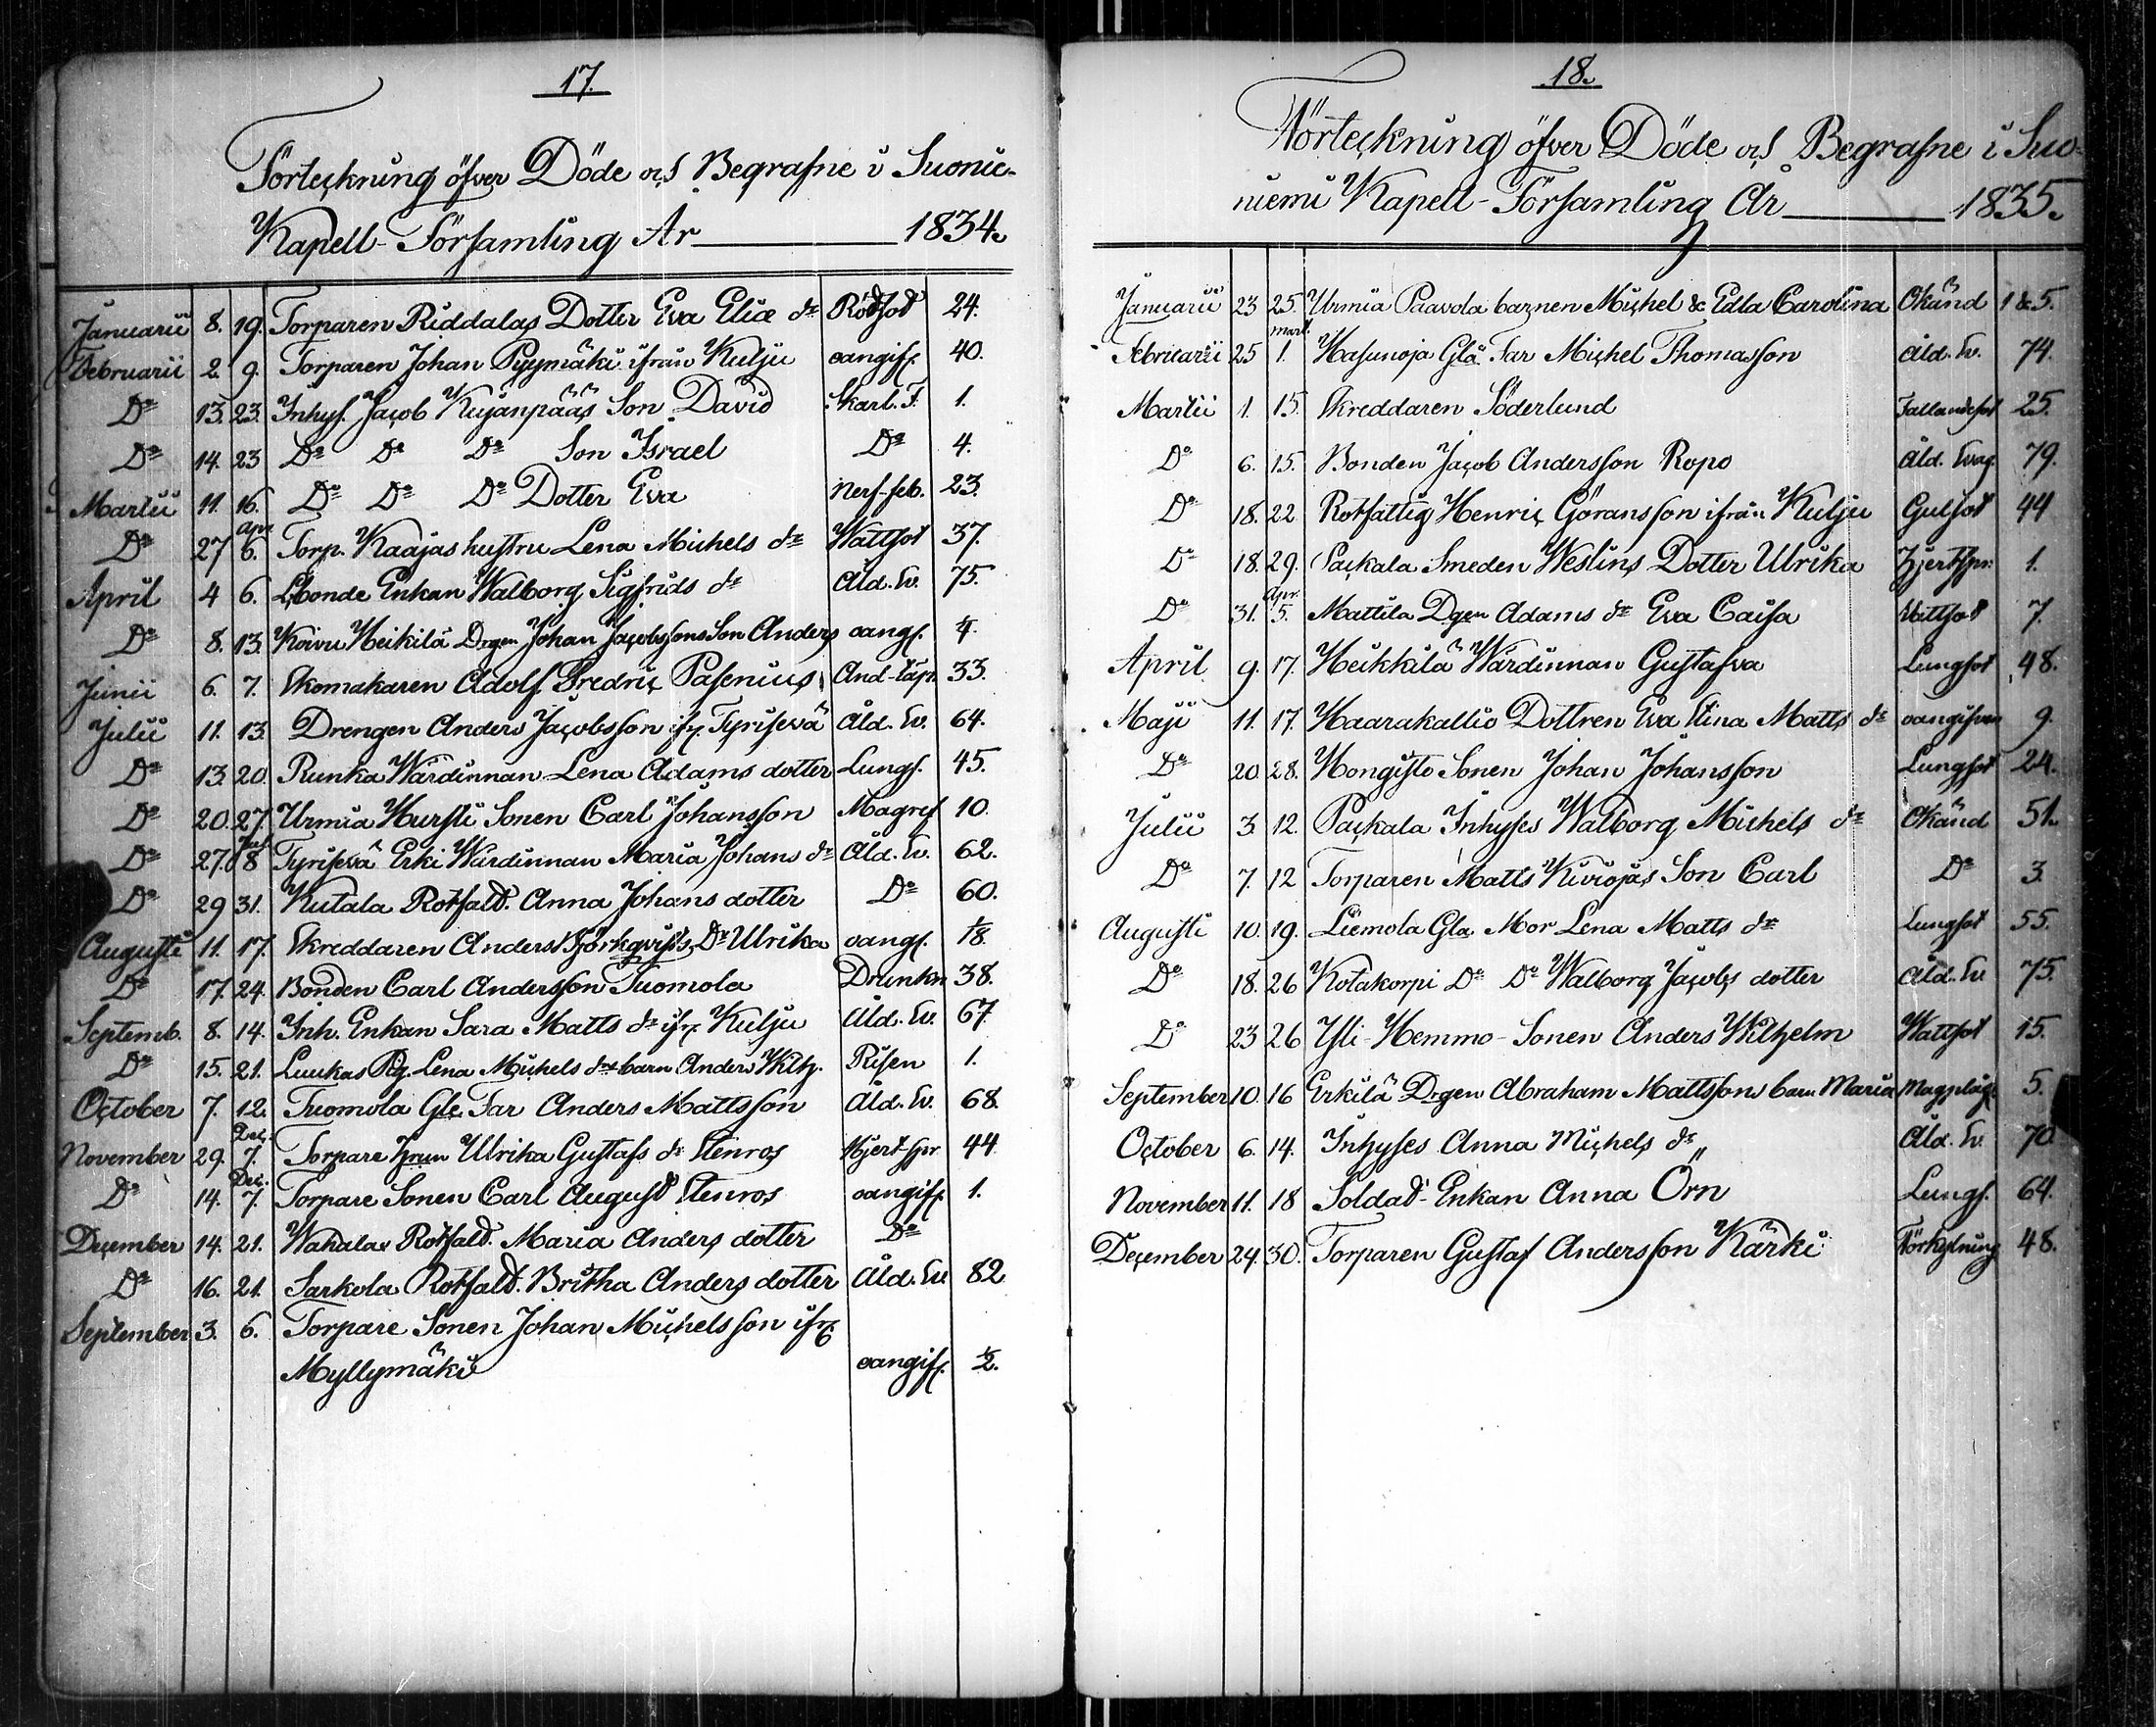 17.
Förteckning öfver Döde och Begrafne i Suonie-
Kapell-Församling År 1834.
Januarii 8. 19. Torparen Riddalas Dotter Eva Eliæ dr Rödsot 24.
Februarii 2. 9. Torparen Johan Pyymäki ifrån Kulju oangif. 40.
Do 13. 23. Inhys. Jacob Kujanpääs Son David Skarl. F. 1.
Do 14. 23 Do Do Do Son Israel Do 4.
Martii 11. 16. Do Do Do Dotter Eva Nerf-feb. 23.
Apr.
Do 27 6. Torp. Kaajas hustru Lena Michels dr Wattsot 37.
April 4 6. Bonde Enkan Walborg Sigfrids dr Åld. Sv. 75.
Do 8. 13. Koivu Heikilä Drgen Johan Jacobssons Son Anders oangf.
Junii 6. 7. Skomakaren Adolf Fredric Pasenius And-täpt. 33.
Julii 11. 13 Drengen Anders Jacobsson ifr. Tyrisevä Åld. Sv. 64.
Do 13. 20. Runka Wärdinnan Lena Adams dotter Lungs. 45.
Do 20. 27. Urmia Hursti Sonen Carl Johansson Magref 10.
Do 27. 8 Tyrisevä Erki Wärdinnan Maria Johans dr Åld. Sv. 62.
Do 29 31. Kutala Rothald. Anna Johans dotter Do 60.
Augusti 11. 17. Skreddaren Anders Björkqvists Dr Ulrika oangf.
Do 17. 24. Bonden Carl Andersson Tuomola Drunkn 38.
Septemb. 8. 14. Inh. Enkan Sara Matts dr ifr. Kulju Åld. Sv. 67.
Do 15. 21. Luukas Pig. Lena Michels drs barn Anders Wilh. Risen 1.
October 7. 12. Tuomola Gle Far Anders Mattsson Åld. Sv. 68.
Dec.
November 29. 7. Torpare Hrun Ulrika Gustafs dr Stenros Hjert-spr 44
Dec.
Do 14. 7. Torpare Sonen Carl August Stenros oangif. 1.
December 14. 21. Wahalax Rothald. Maria Anders dotter Do
Do 16. 21. Sarkola Rothald. Britha Anders dotter Åld. Sv. 82
September 3. 6. Torpare Sonen Johan Michelsson ifr.
Myllymäki oangif. ½.
18.
Förteckning öfver Döde och Begrafne i Suo-
niemi Kapell-Församling År 1835.
Januarii 23 25. Urmia Paavola barnen Michel & Edla Carolina Okänd 1 & 5.
Mart.
Februarii 25 1. Hasunoja Gla Far Michel Thomasson Åld. Sv. 74.
Martii 1. 15. Skreddaren Söderlund Fallandesot 25.
Do 6. 15. Bonden Jacob Andersson Ropo Åld. Svag. 79.
Do 18. 22 Rotfattig Henric Göransson ifrån Kulju Gulsot 44
Do 18. 29. Packala Smeden Weslins Dotter Ulrika Hjertspr. 1.
Apr.
Do 31. 5. Mattila Dgen Adams dr Eva Caisa Wattsot 7.
April 9. 17. Heikkilä Wärdinnan Gustafva Lungsot 48.
Maji 11. 17. Haarakallio Dottren Eva Stina Matts dr oangifven 9.
Do 20 28. Hongisto Sonen Johan Johansson Lungsot 24.
Julii 3 12. Packala Inhyses Walborg Michels dr Okänd 51.
Do 7. 12 Torparen Matts Kiviojas Son Carl Do 3.
Augusti 10. 19. Liemola Gla Mor Lena Matts dr Lungsot 55.
Do 18. 26 Kotakorpi Do Do Walborg Jacobs dotter Åld. Sv. 75.
Do 23 26 Yli-Hemmo-Sonen Anders Wilhelm Wattsot 15.
September 10. 16 Erkilä Drgen Abraham Mattssons barn Maria Magplåg. 5.
October 6. 14. Inhyses Anna Michels dr Åld. Sv. 70
November 11. 18 Soldat-Enkan Anna Örn Lungs. 64.
December 24. 30. Torparen Gustaf Andersson Kärki Förkylning 48.